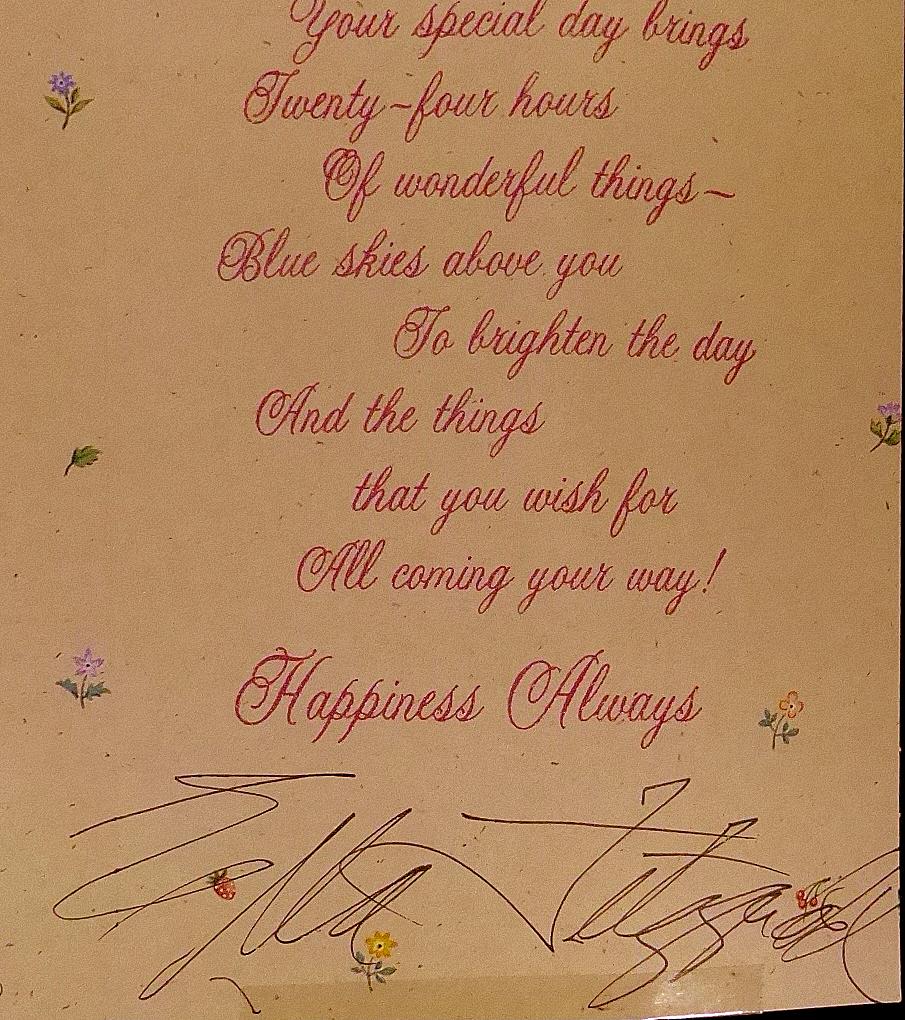 Your special day brings
Twenty-four hours
Of wonderful things~
Blue skies above you
To brighten the day
And the things
that you wish for
All coming your way!
Happiness Always
Ella Fitzgerald